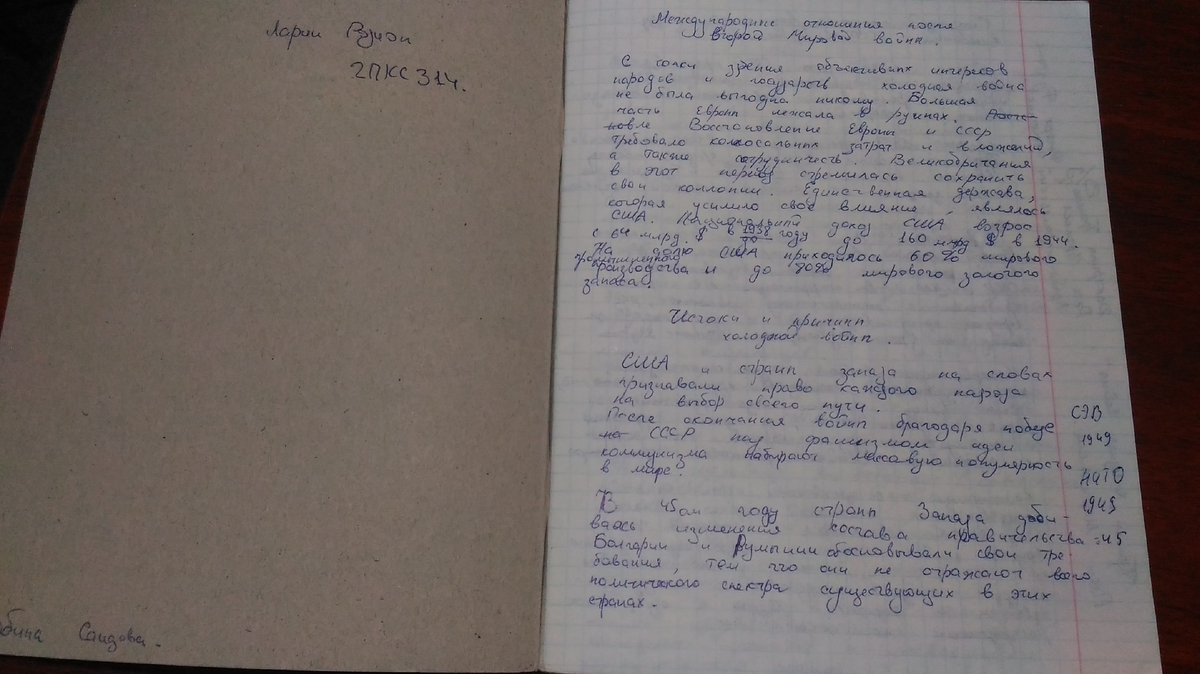 Ларин
2ПКС 314.
Саидова.
Международные отношения после
Второй Мировой войны.
С точки зрения объективных интересов
народов и государств холодная война
не была выгодна никому. Большая
часть Европы лежала в руинах.
Восстановление Европы и СССР
требовало колосальных затрат и вложений,
а также сотрудничесть. Великобритания
в этот период стремилась сохранить
свои коллонии. Единственная держава,
которая усилило своё влияние, являлась
США. Национальный доход США возрос
с 64 млрд. $ в 1938 году до 160 млрд $ в 1944.
На долю США приходилось 60% мирового
промышленного
производства и до 80% мирового золотого
запаса.
Истоки и причины
холодной войны.
США и страны запада на словах
признавали право каждого народа
на выбор своего пути.
После окончания войны благодаря победе
на СССР над фашизмом идеи
коммунизма набирают массовую популярность
в мире.
СЭВ
1949
НАТО
1949
В 45ом году страны Запада доби-
ваясь изменения состава правительства
Болгарии и Румынии обосновывали свои тре
бования, тем что они не отражают всего
политического спектра существующих в этих
странах.